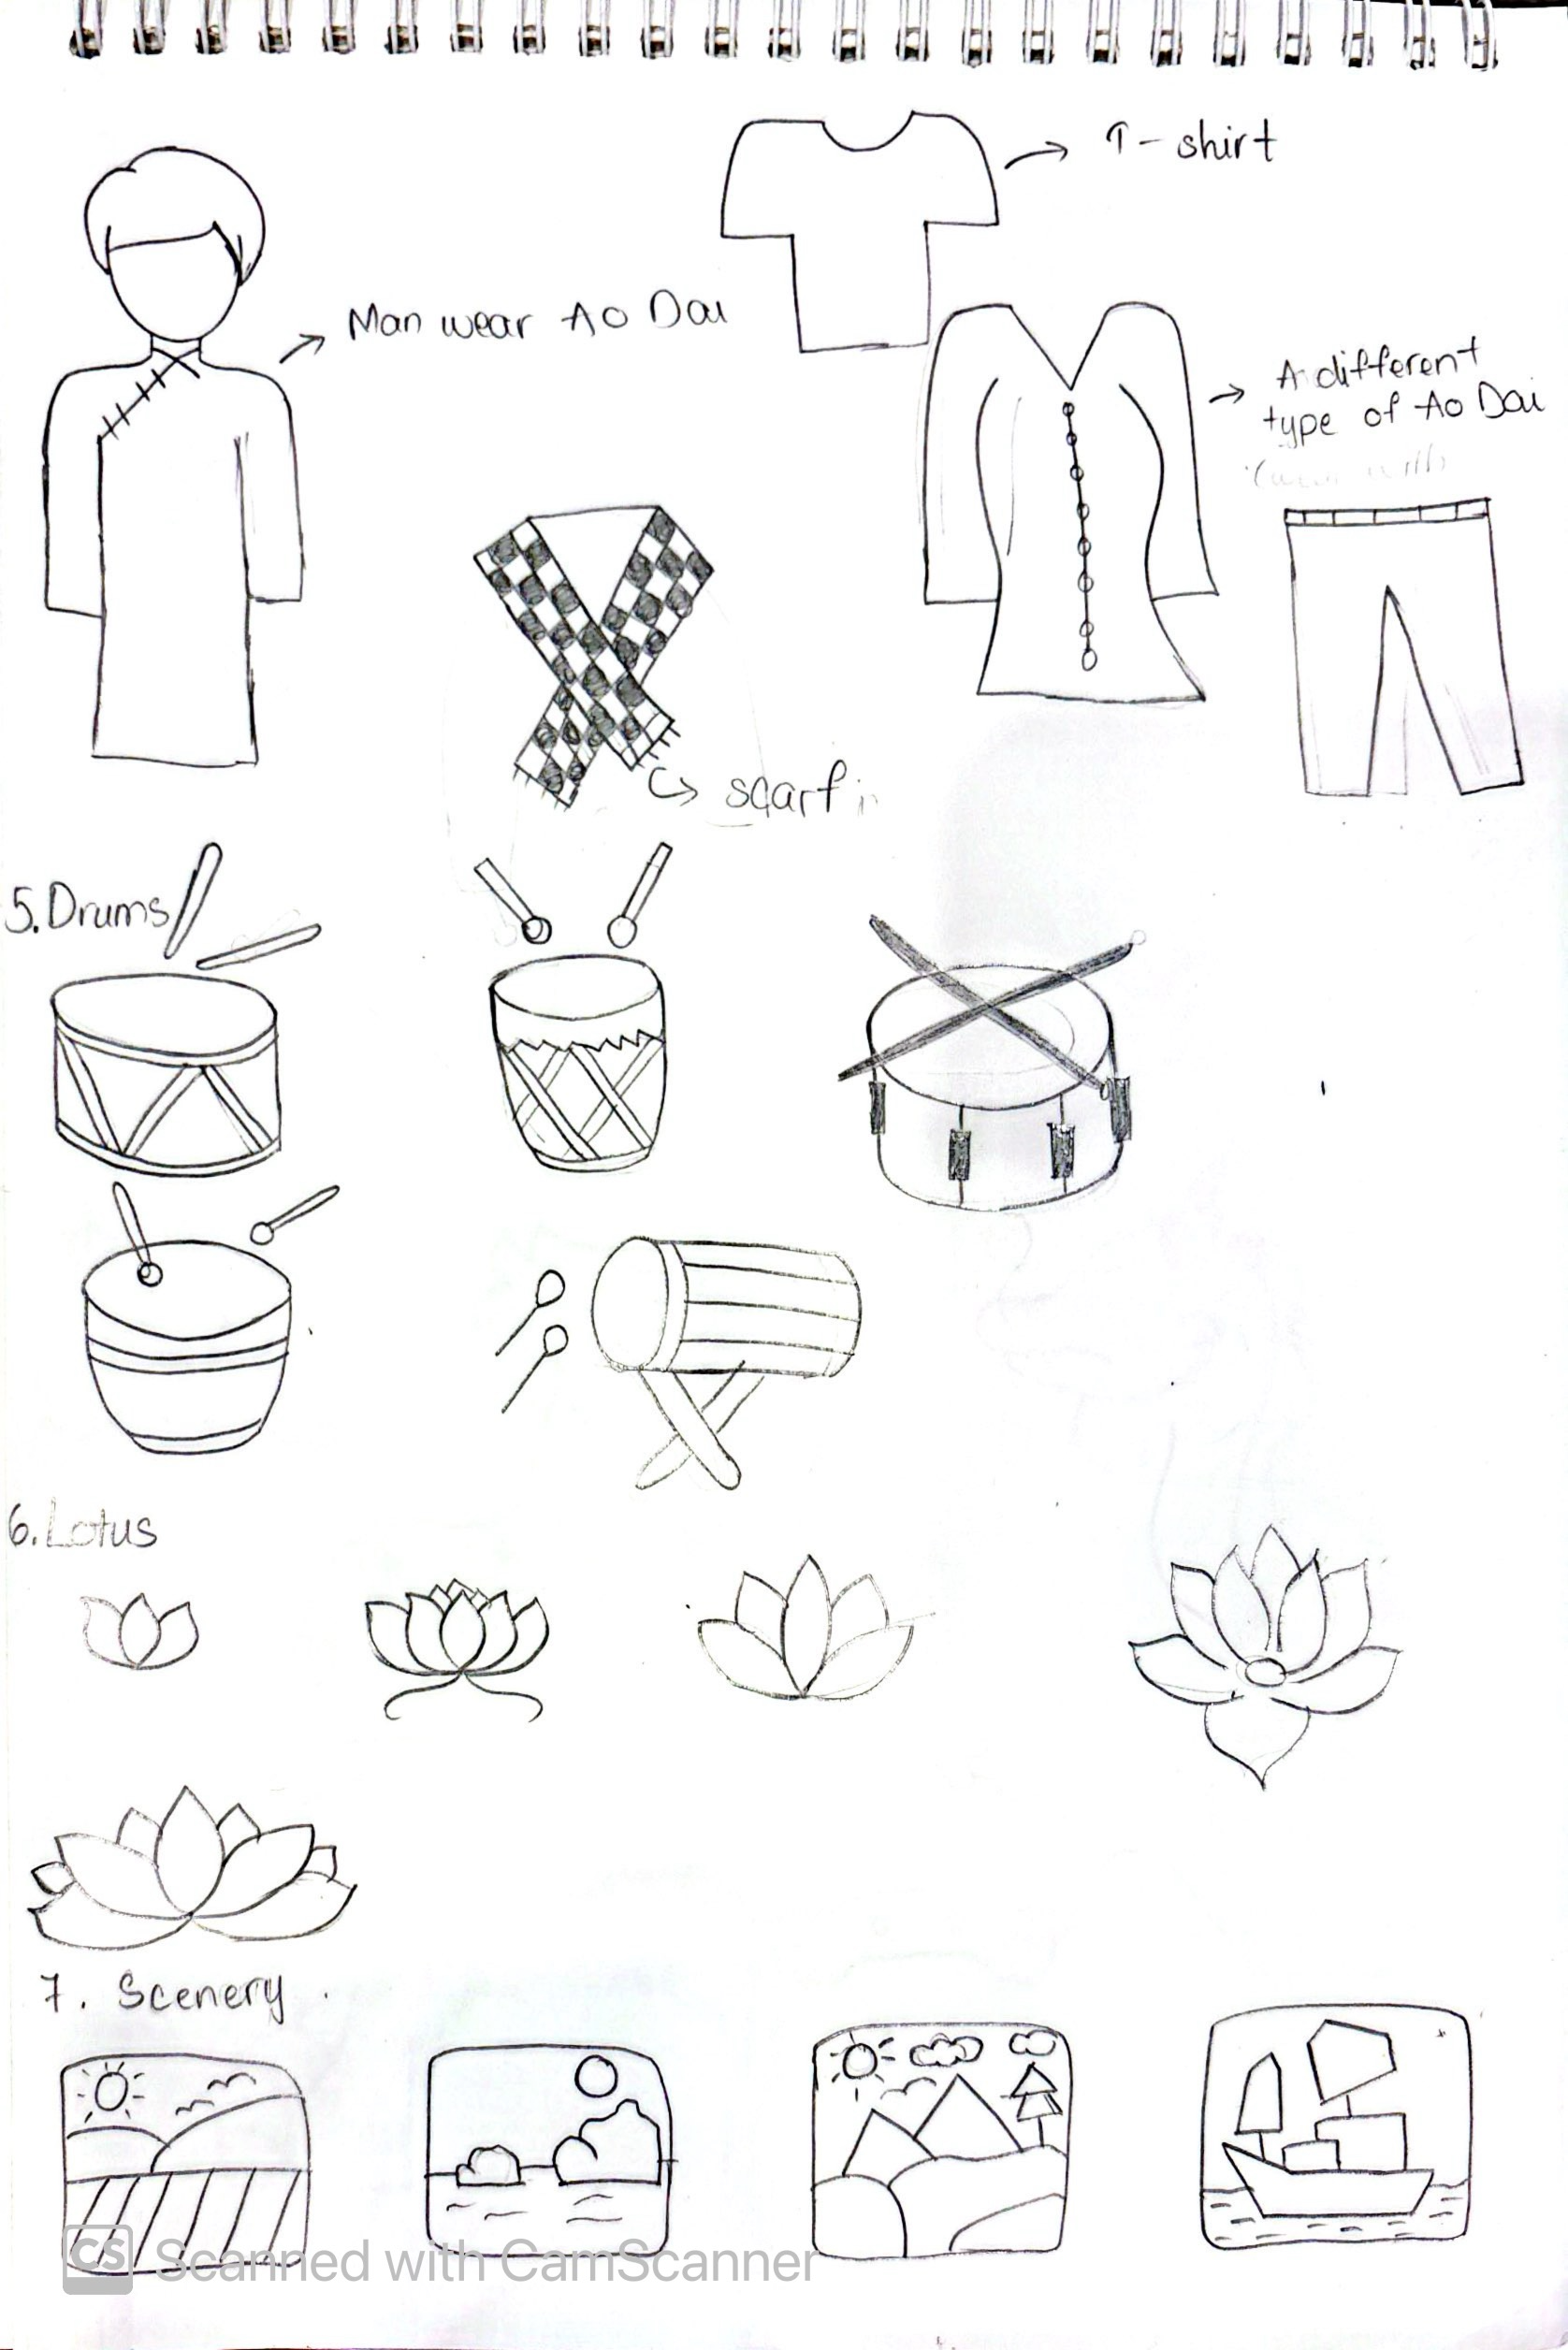 T-shirt
Man wear Ao Dai
A different
type of Ao Dai
scarf
5. Drums
6. Lotus
7. Scenery
CS Scanned with CamScanner